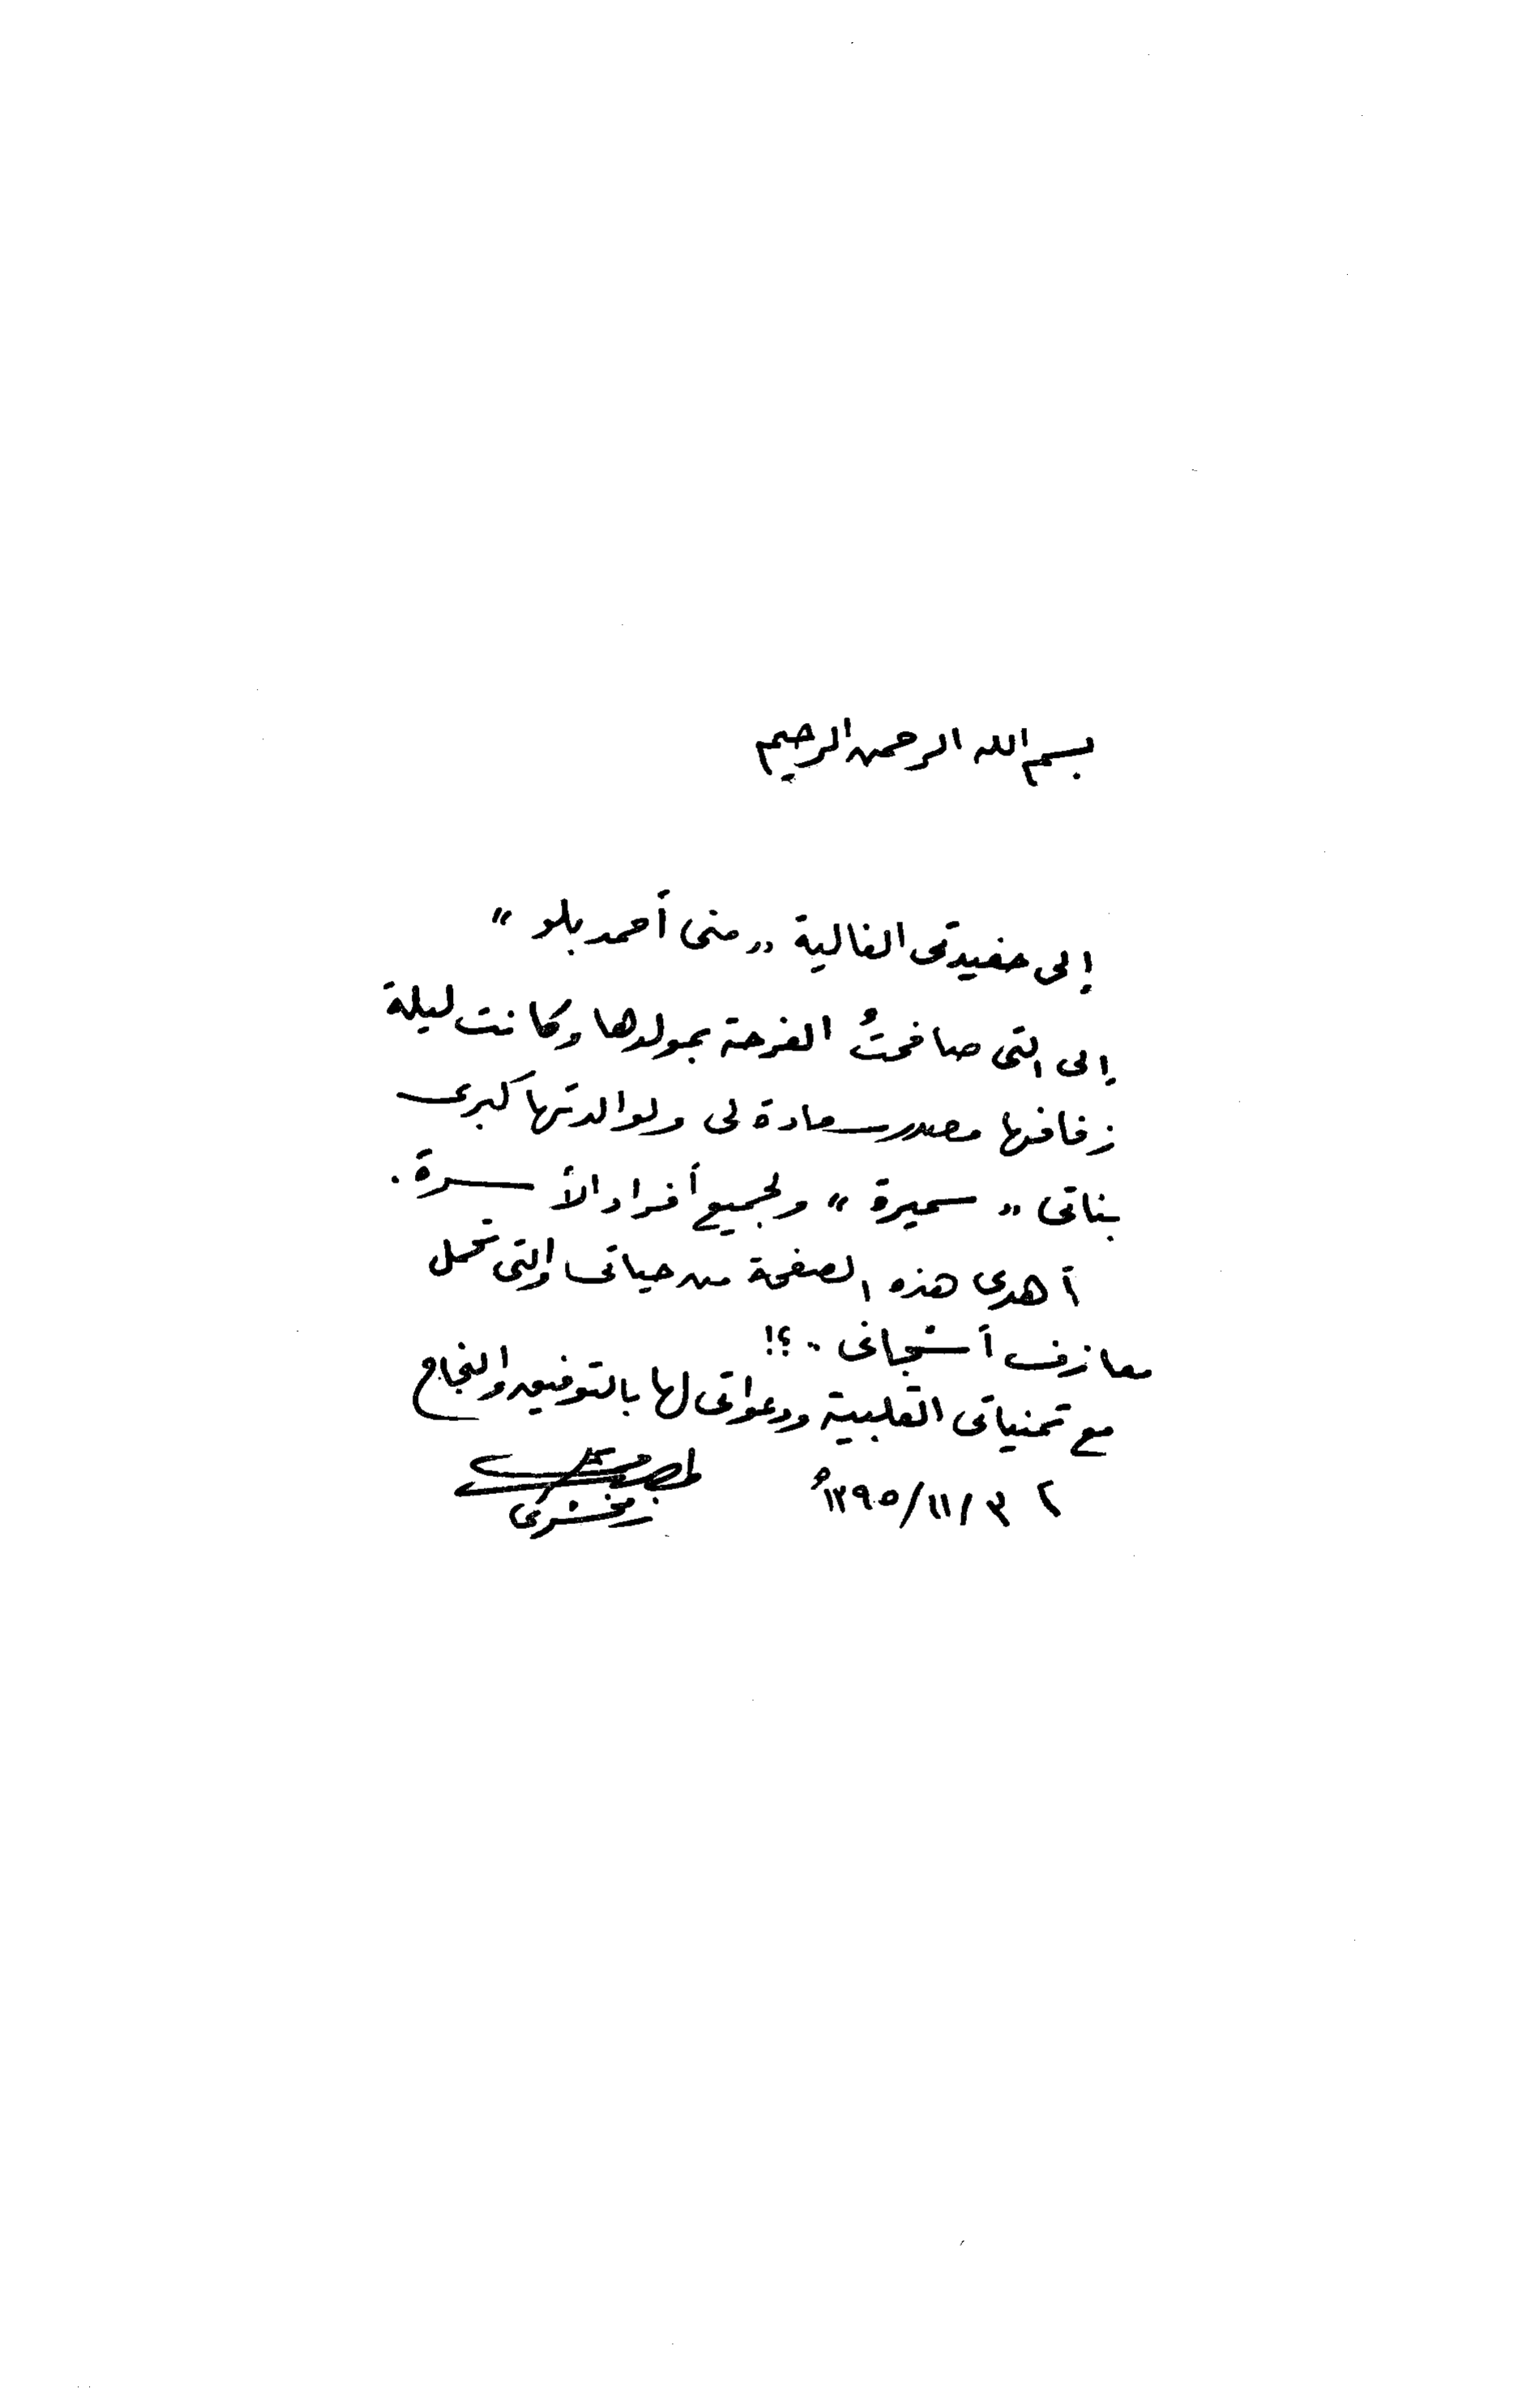 بسم الله الرحمن الرحيم
إلى حفيدتى الغالية " منى أحمد بلو "
إلى التى صافحتُ الفرحة بمولدها وكانت ليلة
زفافها مصدر سعادة لى ولوالدتها كبرى
بناتى " سميرة " ولجميع أفراد الأسرة .
أهدى هذه الصفحة من حياتى والتى تحمل
معازف أشجانى .. ؟!
مع تمنياتى القلبية ودعواتى لها بالتوفيق والنجاح
طاهر زمخشرى
١٣٩٥/١١/٣هـ